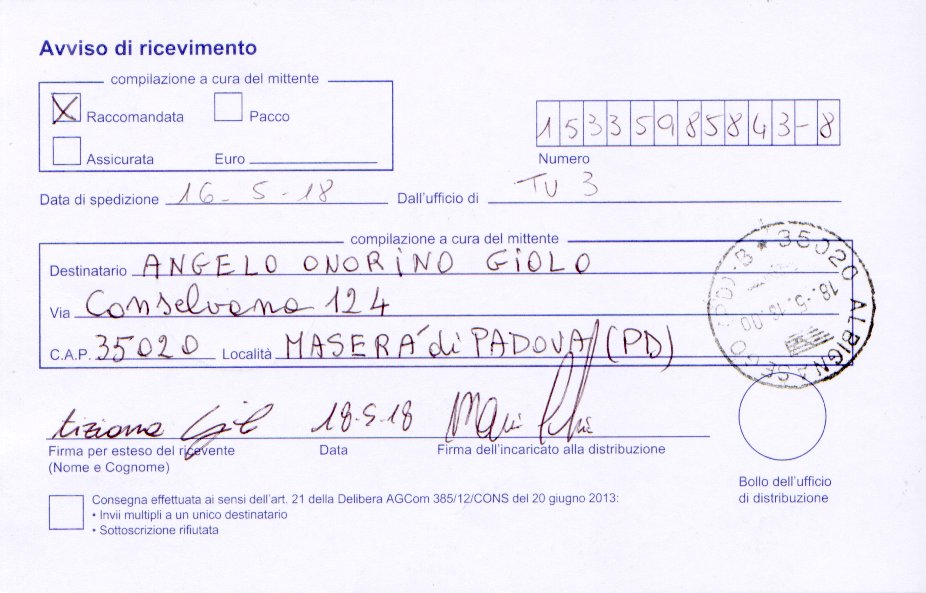 Avviso di ricevimento
compilazione a cura del mittente
X Raccomandata Pacco
Assicurata Euro
15335985843-8
Numero
Data di spedizione 16-5-18 Dall'ufficio di TV 3
compilazione a cura del mittente
Destinatario ANGELO ONORINO GIOLO
Via Conselvana 124
C.A.P. 35020 Località MASERÁ di PADOVA (PD)
35020 ALBIGNASEGO (PD)-3 *
18.-5.18.00
tiziana 18-5-18
Firma per esteso del ricevente Data Firma dell'incaricato alla distribuzione
(Nome e Cognome)
Bollo dell'ufficio
di distribuzione
Consegna effettuata ai sensi dell'art. 21 della Delibera AGCom 385/12/CONS del 20 giugno 2013:
• Invii multipli a un unico destinatario
• Sottoscrizione rifiutata